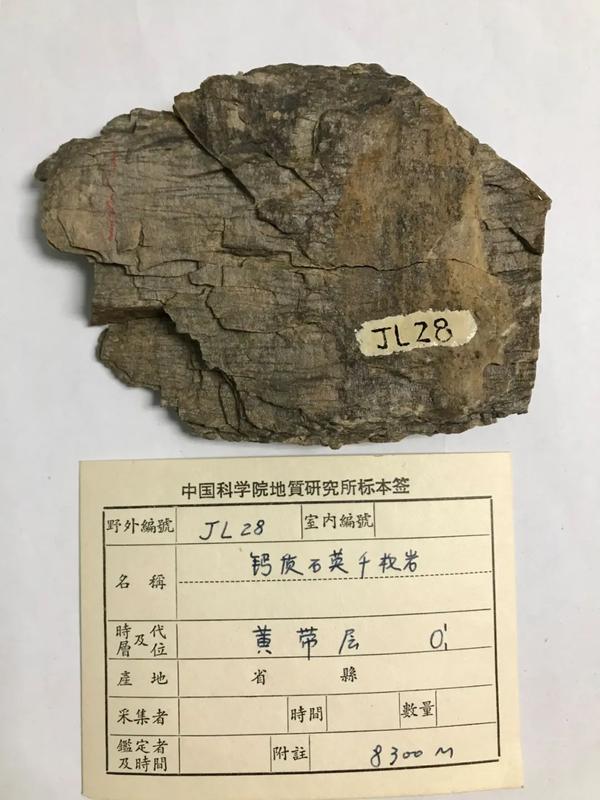 JL28
中国科学院地質研究所标本签
野外編號 JL28 室内編號
名稱 钙质石英千枚岩
時代及層位 黄带层 O₁¹
產地 省 縣
采集者 時間 数量
鑑定者及時間 附註 8300M